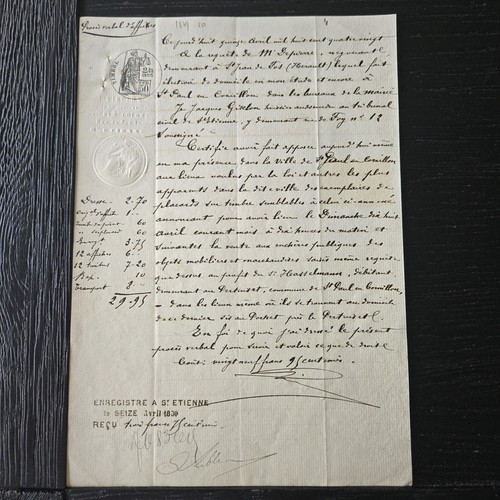 Procès verbal d'affiches
Ce jourd'huit quinze avril mil huit cent quatre vingt
à la requête de Mr Depierre, négociant
demeurant à St Jean de Fos (Hérault) lequel fait
élection de domicile en mon étude et encore à
St Paul en Cornillon dans les bureaux de la mairie
Je Jacques huissier audiencier au tribunal
civil de St Etienne, y demeurant rue de Foy no 12
Soussigné
Certifie avoir fait apposer aujourd'hui même
en ma présence dans la ville de St Paul en Cornillon
aux lieux voulus par la loi et autres les plus
apparents dans la dite ville des exemplaires de
placards sur timbre semblables à celui ci-annexé
annonçant pour avoir lieu le Dimanche dix huit
avril courant mois à dix heures du matin et
suivantes la vente aux enchères publiques des
objets mobiliers et marchandises saisis même requête
que dessus au préjudice du St Hasselmann, débitant
demeurant au Pertuiset, commune de St Paul en Cornillon,
dans les lieux même où ils se trouvent au domicile
de ce dernier sis au près le Pertuiset
En foi de quoi j'ai dressé le présent
procès verbal pour servir et valoir ce que de droit
Coût: vingt neuf francs 95 centimes
TIMBRE
Dresse 2.70
1
60
60
3.75
12 affiches 6
12 timbres 7.20
Rep. 10
Transport 8
29.95
ENREGISTRÉ A ST ETIENNE
le SEIZE Avril 1880
REÇU trois francs 75 centimes